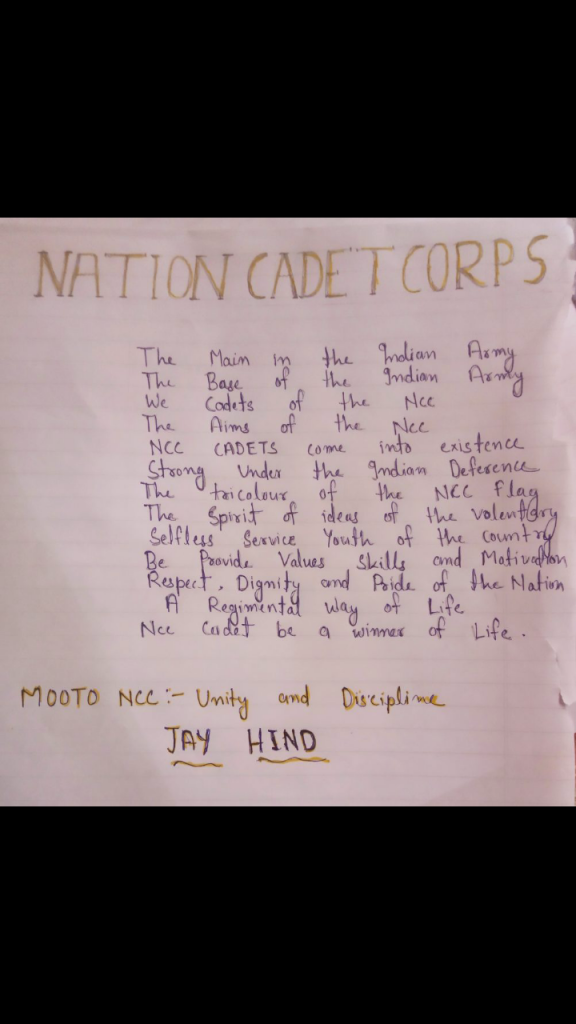 NATION CADET CORPS
The Main in the Indian Army
The Base of the Indian Army
We Cadets of the Ncc
The Aims of the Ncc
NCC CADETS come into existence
Strong Under the Indian Deference
The tricolour of the NCC Flag
The Spirit of ideas of the volentary
Selfless Service Youth of the country
Be Provide Values Skills and Motivation
Respect, Dignity and Pride of the Nation
A Regimental way of Life
Ncc Cadet be a winner of Life.
MOOTO NCC :- Unity and Discipline
JAY HIND